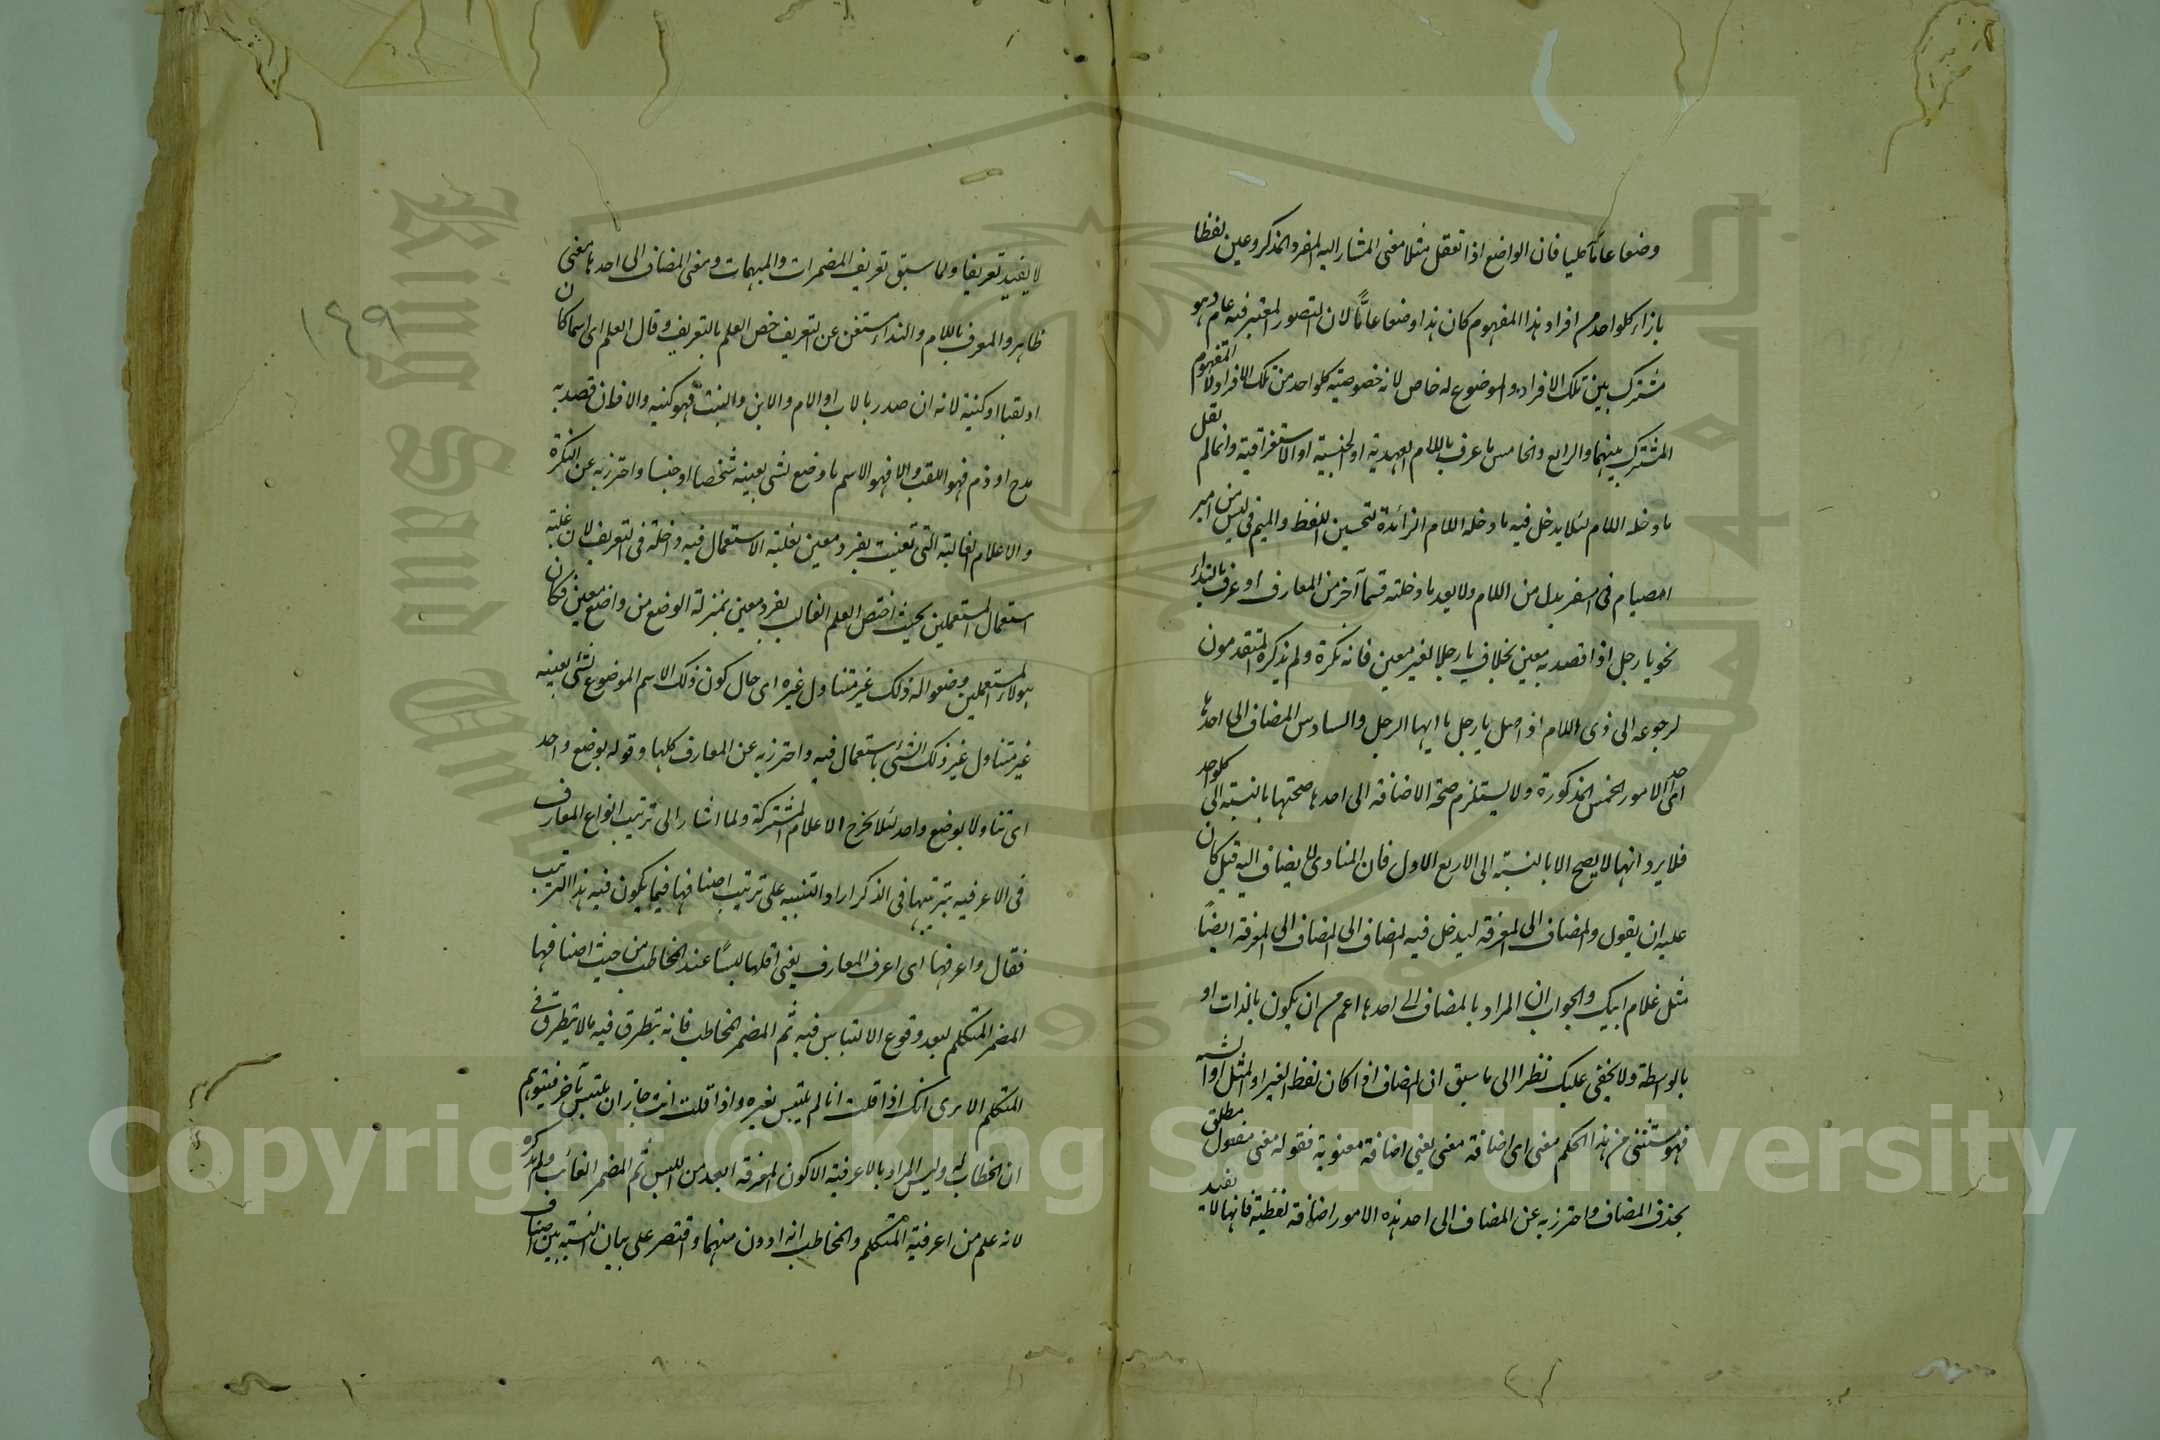 وضعا عاما كليا فان الواضع اذا تعقل مثلا معنى المشار اليه المفرد المذكر وعين لفظا
بازاء كلواحد من افراد هذا المفهوم كان هذا وضعا عامًّا لان التصور المعتبر فيه عام وهو
مشترك بين تلك الافراد والموضوع له خاص لانه خصوصية كلواحد من تلك الافراد لا المفهوم
المشترك بينهما والرابع والخامس ما عرف باللام العهدية او الجنسية او الاستغراقية وانما لم يقل
ما دخله اللام لئلا يدخل فيه ما دخله اللام الزائدة لتحسين اللفظ والميم فى ليس من امبر
امصيام فى امسفر بدل من اللام ولا يعد ما دخلته قسما آخر من المعارف او عرف بالنداء
نحو يا رجل اذا قصد به معين بخلاف يا رجلا لغير معين فانه نكرة ولم يذكره المتقدمون
لرجوعه الى ذى اللام اذ اصل يا رجل يا ايها الرجل والسادس المضاف الى احدها
اى احد الامور الخمس المذكورة ولا يستلزم صحة الاضافة الى احدها صحتها بالنسبة الى كلواحد
فلا يرد انها لا يصح الا بالنسبة الى الاربع الاول فان المنادى لا يضاف اليه قيل كان
عليه ان يقول والمضاف الى المعرفة ليدخل فيه المضاف الى المضاف الى المعرفة ايضًا
مثل غلام ابيك والجواب ان المراد بالمضاف الى احدها اعم من ان يكون بالذات او
بالوسطة ولا يخفى عليك نظرا الى ما سبق ان المضاف اذا كان لفظ الغير او المثل او الشبه
فهو مستثنى من هذا الحكم معنى اى اضافة معنى يعنى اضافة معنوية فقوله معنى مفعول مطلق
بحذف المضاف واحترز به عن المضاف الى احد هذه الامور اضافة لفظية فانها لا تفيد
لا يفيد تعريفا ولما سبق تعريف المضمرات والمبهمات ومعنى المضاف الى احدها معنى
ظاهر والمعرف باللام والنداء مستغن عن التعريف خص العلم بالتعريف وقال العلم اى اسما كان
او لقبا او كنية لانه ان صدر بالاب او الام والابن والبنت فهو كنيه والا فان قصد به
مدح او ذم فهو اللقب والا فهو الاسم ما وضع لشئ بعينه شخصا او جنسا واحترز به عن النكرة
والاعلام الغالبة التى تعينت بفرد معين لغلبة الاستعمال فيه داخلة فى التعريف لان غلبة
استعمال المستعملين بحيث اختص العلم الغالب بفرد معين بمنزلة الوضع من واضع معين فكان
هولاء المستعملين وضعوا له ذلك غير متناول غيره اى حال كون ذلك الاسم الموضوع لشئ بعينه
غير متناول غير ذلك الشئ باستعمال فيه واحترز به عن المعارف كلها وقوله بوضع واحد
اى تناولا بوضع واحد لئلا يخرج الاعلام المشتركة ولما اشار الى ترتيب انواع المعارف
فى الاعرفيه بترتيبها فى الذكر اراد التنبيه على ترتيب اصنافها فيما يكون فيه هذا الترتيب
فقال واعرفها اى اعرف المعارف يعنى اقلها لبسًا عند المخاطب من حيث اصنافها
المضمر المتكلم لبعد وقوع الالتباس فيه ثم المضمر المخاطب فانه يتطرق فيه مالا يتطرق فى
المتكلم الا يرى انك اذا قلت انا لم يلتبس بغيره واذا قلت انت جاز ان يلتبس بآخر فيتوهم
ان الخطاب له وليس المراد بالاعرفية الا كون المعرفة ابعد من اللبس ثم المضمر الغائب ولم يذكره
لانه علم من اعرفية المتكلم والمخاطب انه ادون منهما واقتصر على بيان النسبة بين اصناف
١٤٩